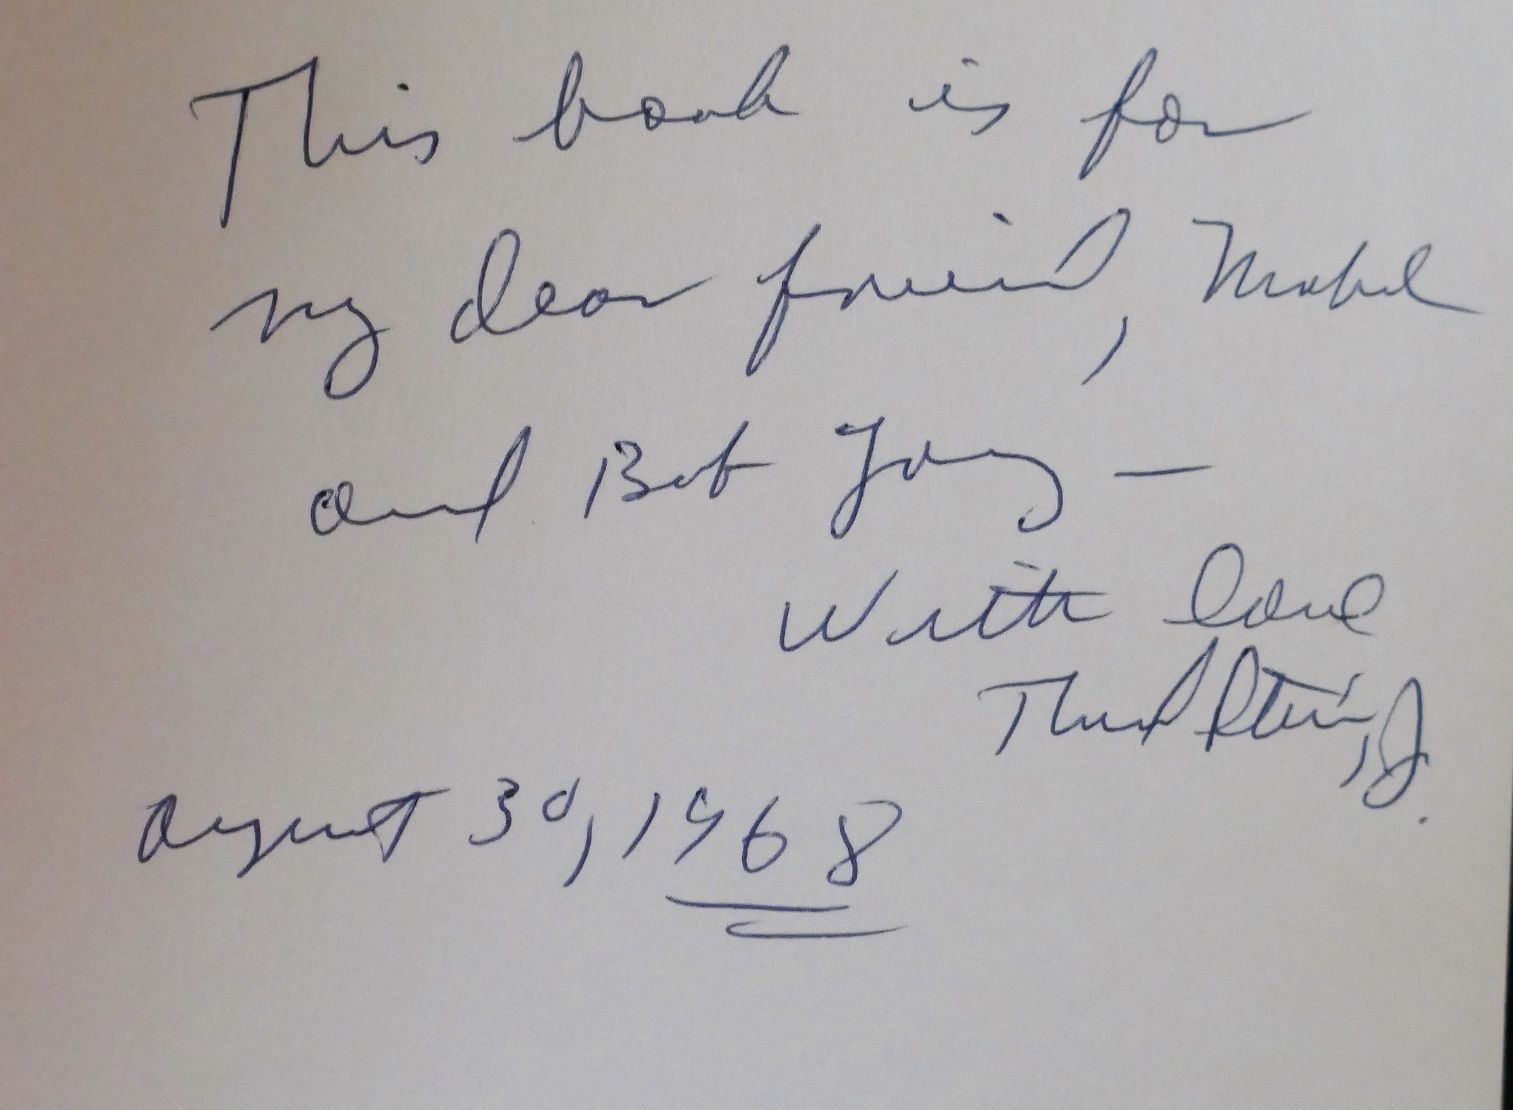 This book is for
my dear friend, Mabel
and Bob Young —
With love
August 30, 1968